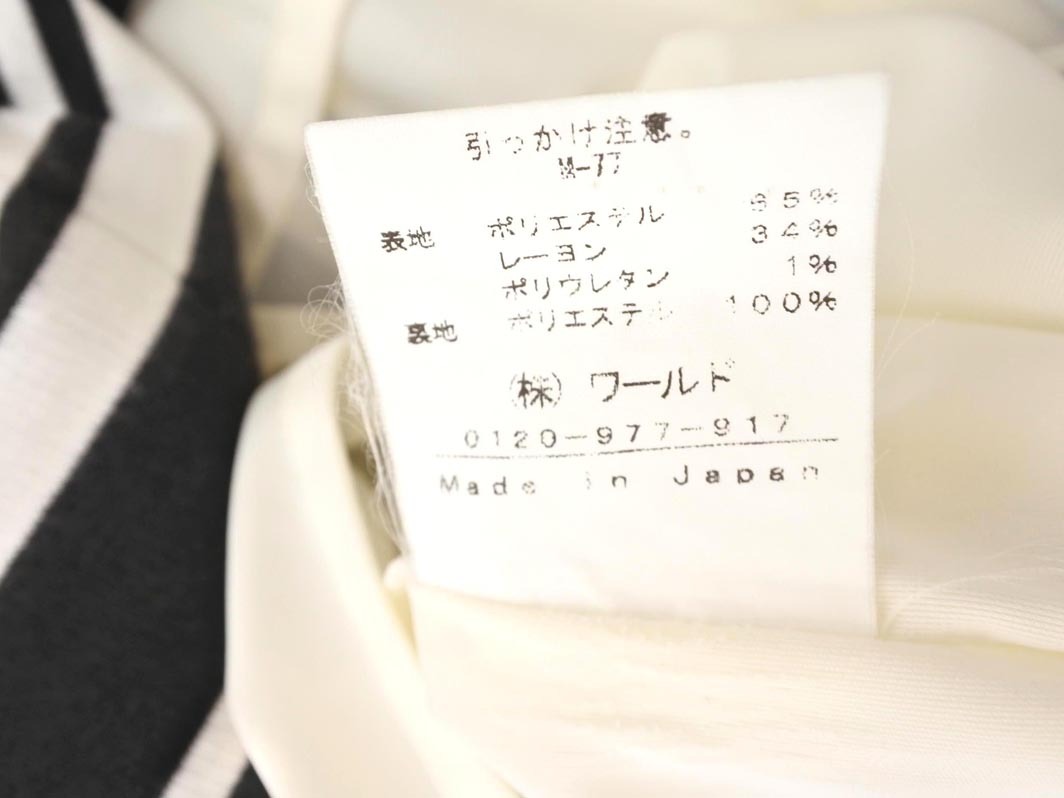 引っかけ注意。
M-77
表地 ポリエステル 65%
レーヨン 34%
ポリウレタン 1%
裏地 ポリエステル 100%
(株) ワールド
0120-977-917
Made in Japan